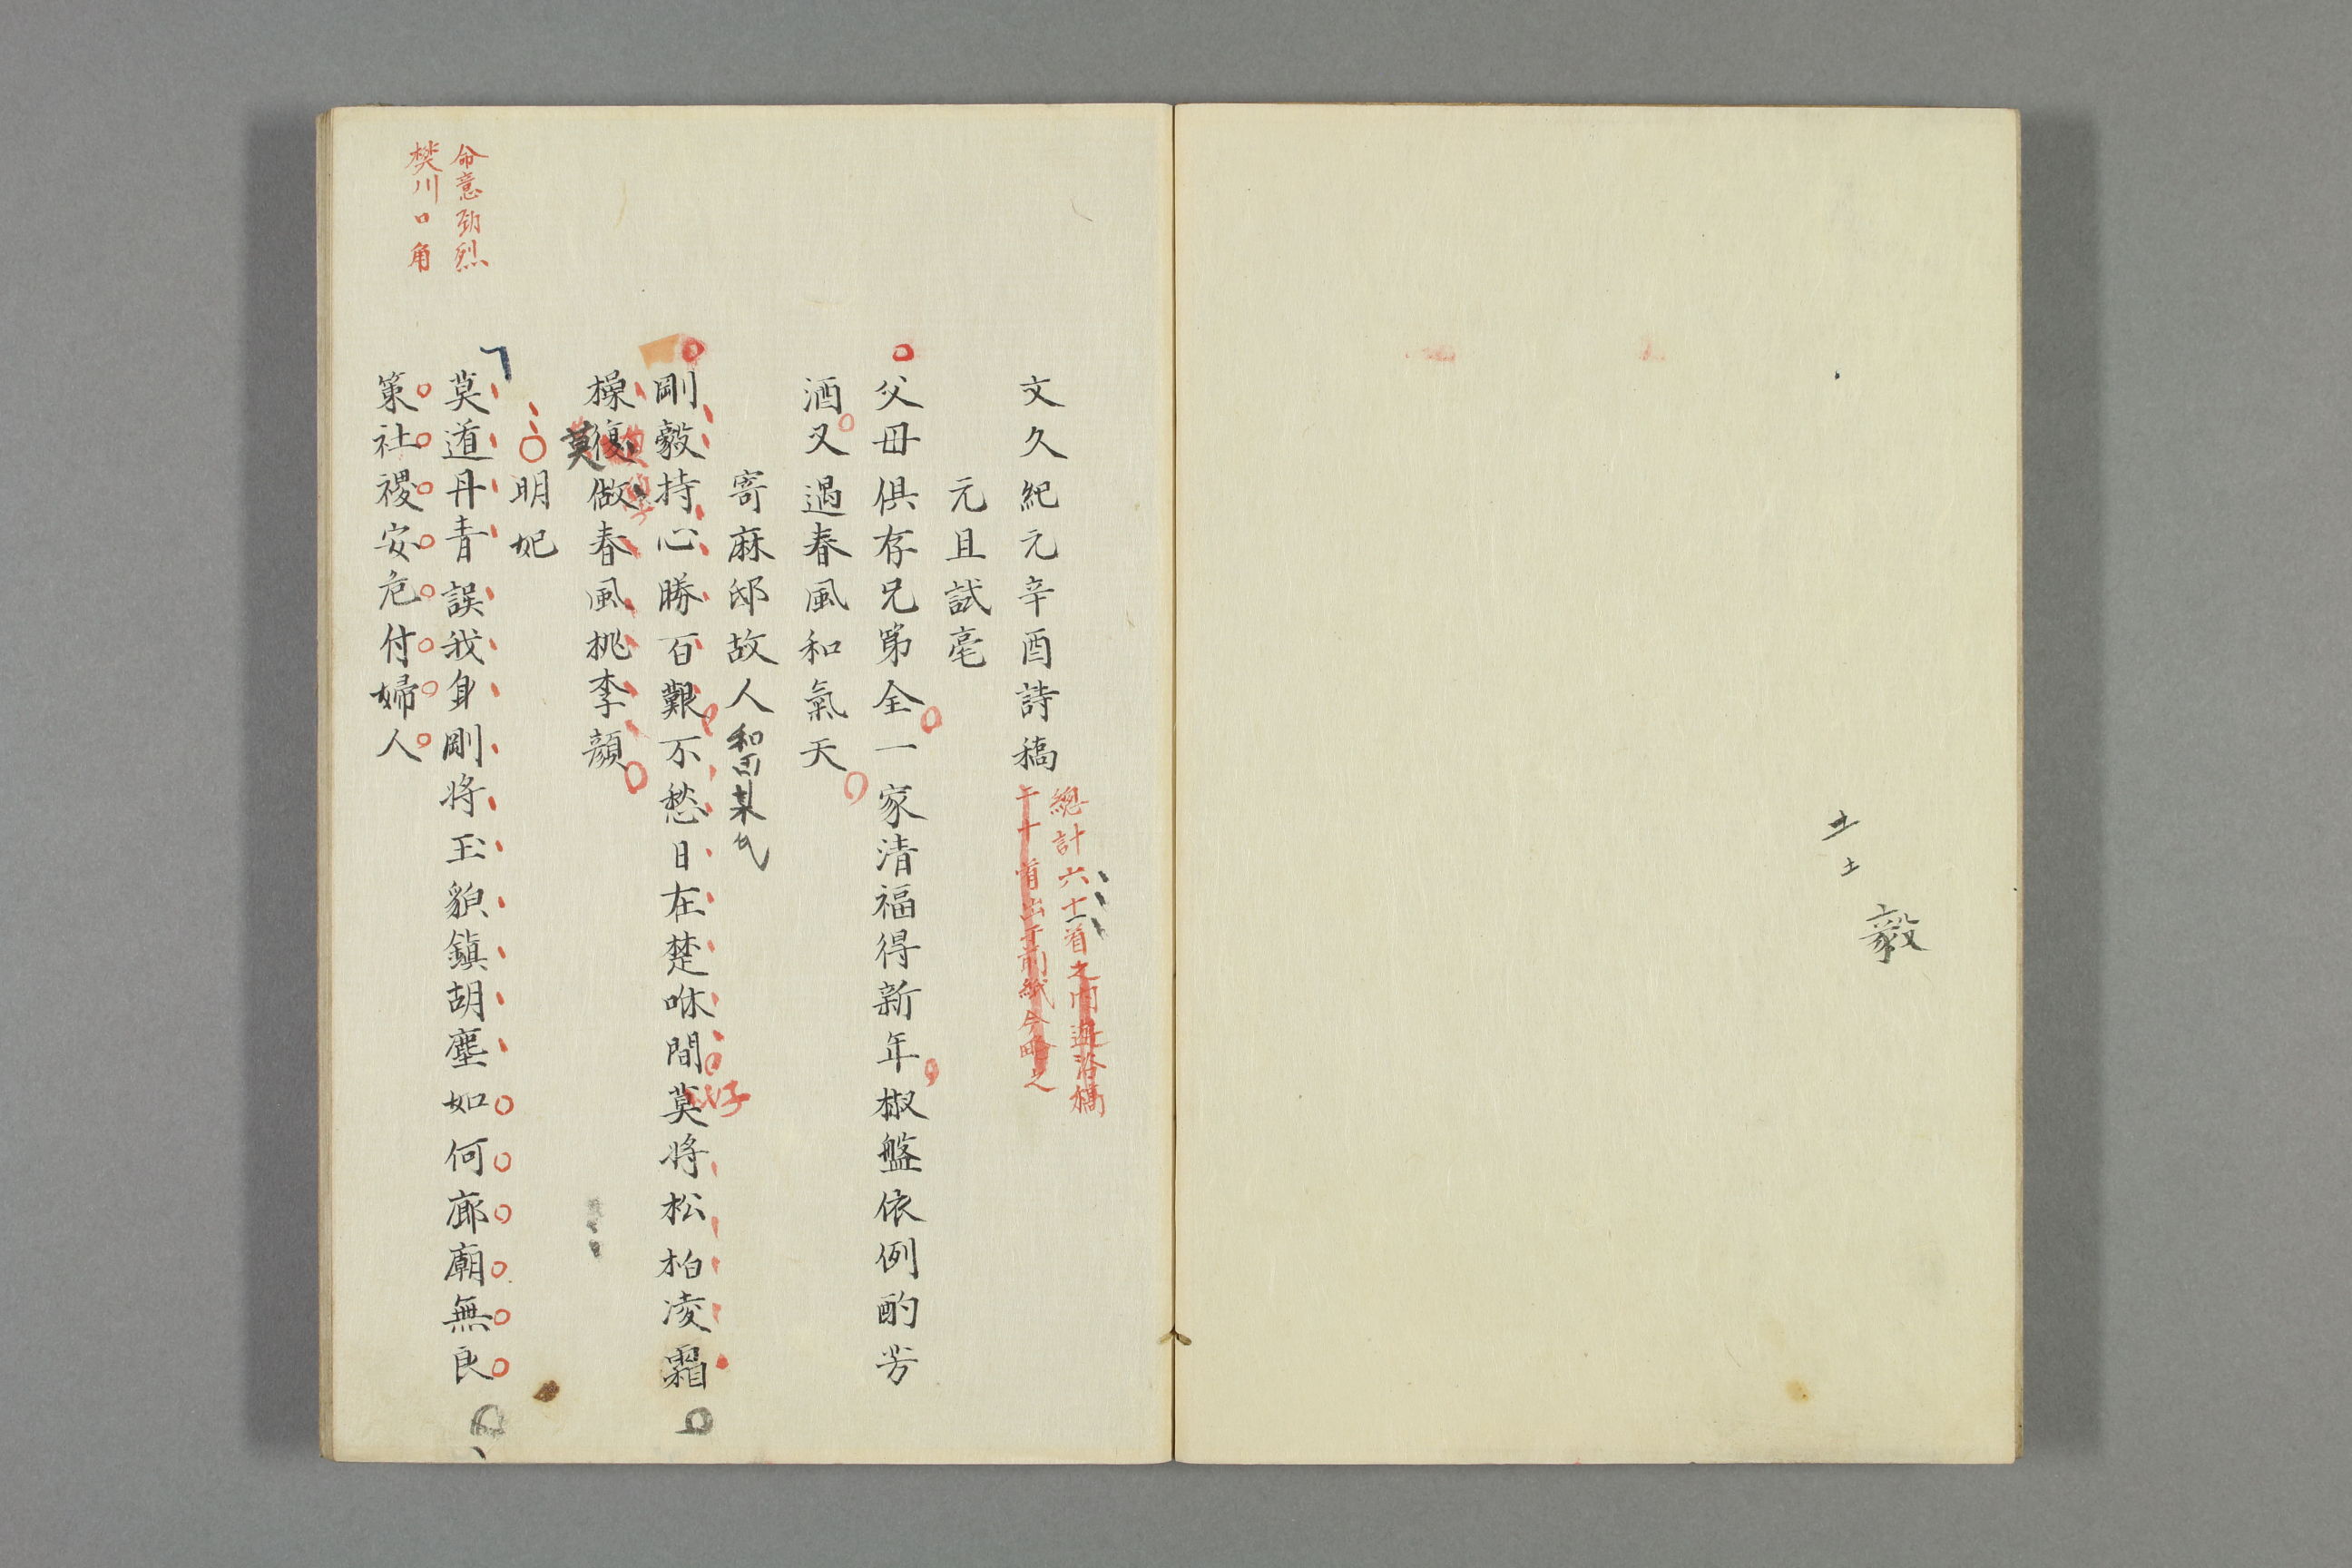 土
土
毅
文久紀元辛酉詩稿
總計六十一首之内遊洛稿
二十首出于前紙今略之
元旦試毫
父母俱存兄弟全一家清福得新年椒盤依例酌芳
酒又遇春風和氣天
寄麻邸故人
剛毅持心勝百艱不愁日在楚咻間莫將松柏凌霜
好
操復做春風桃李顏
莫
明妃
莫道丹青誤我身剛將玉貌鎮胡塵如何廊廟無良
策社稷安危付婦人
命意勁烈
樊川口角